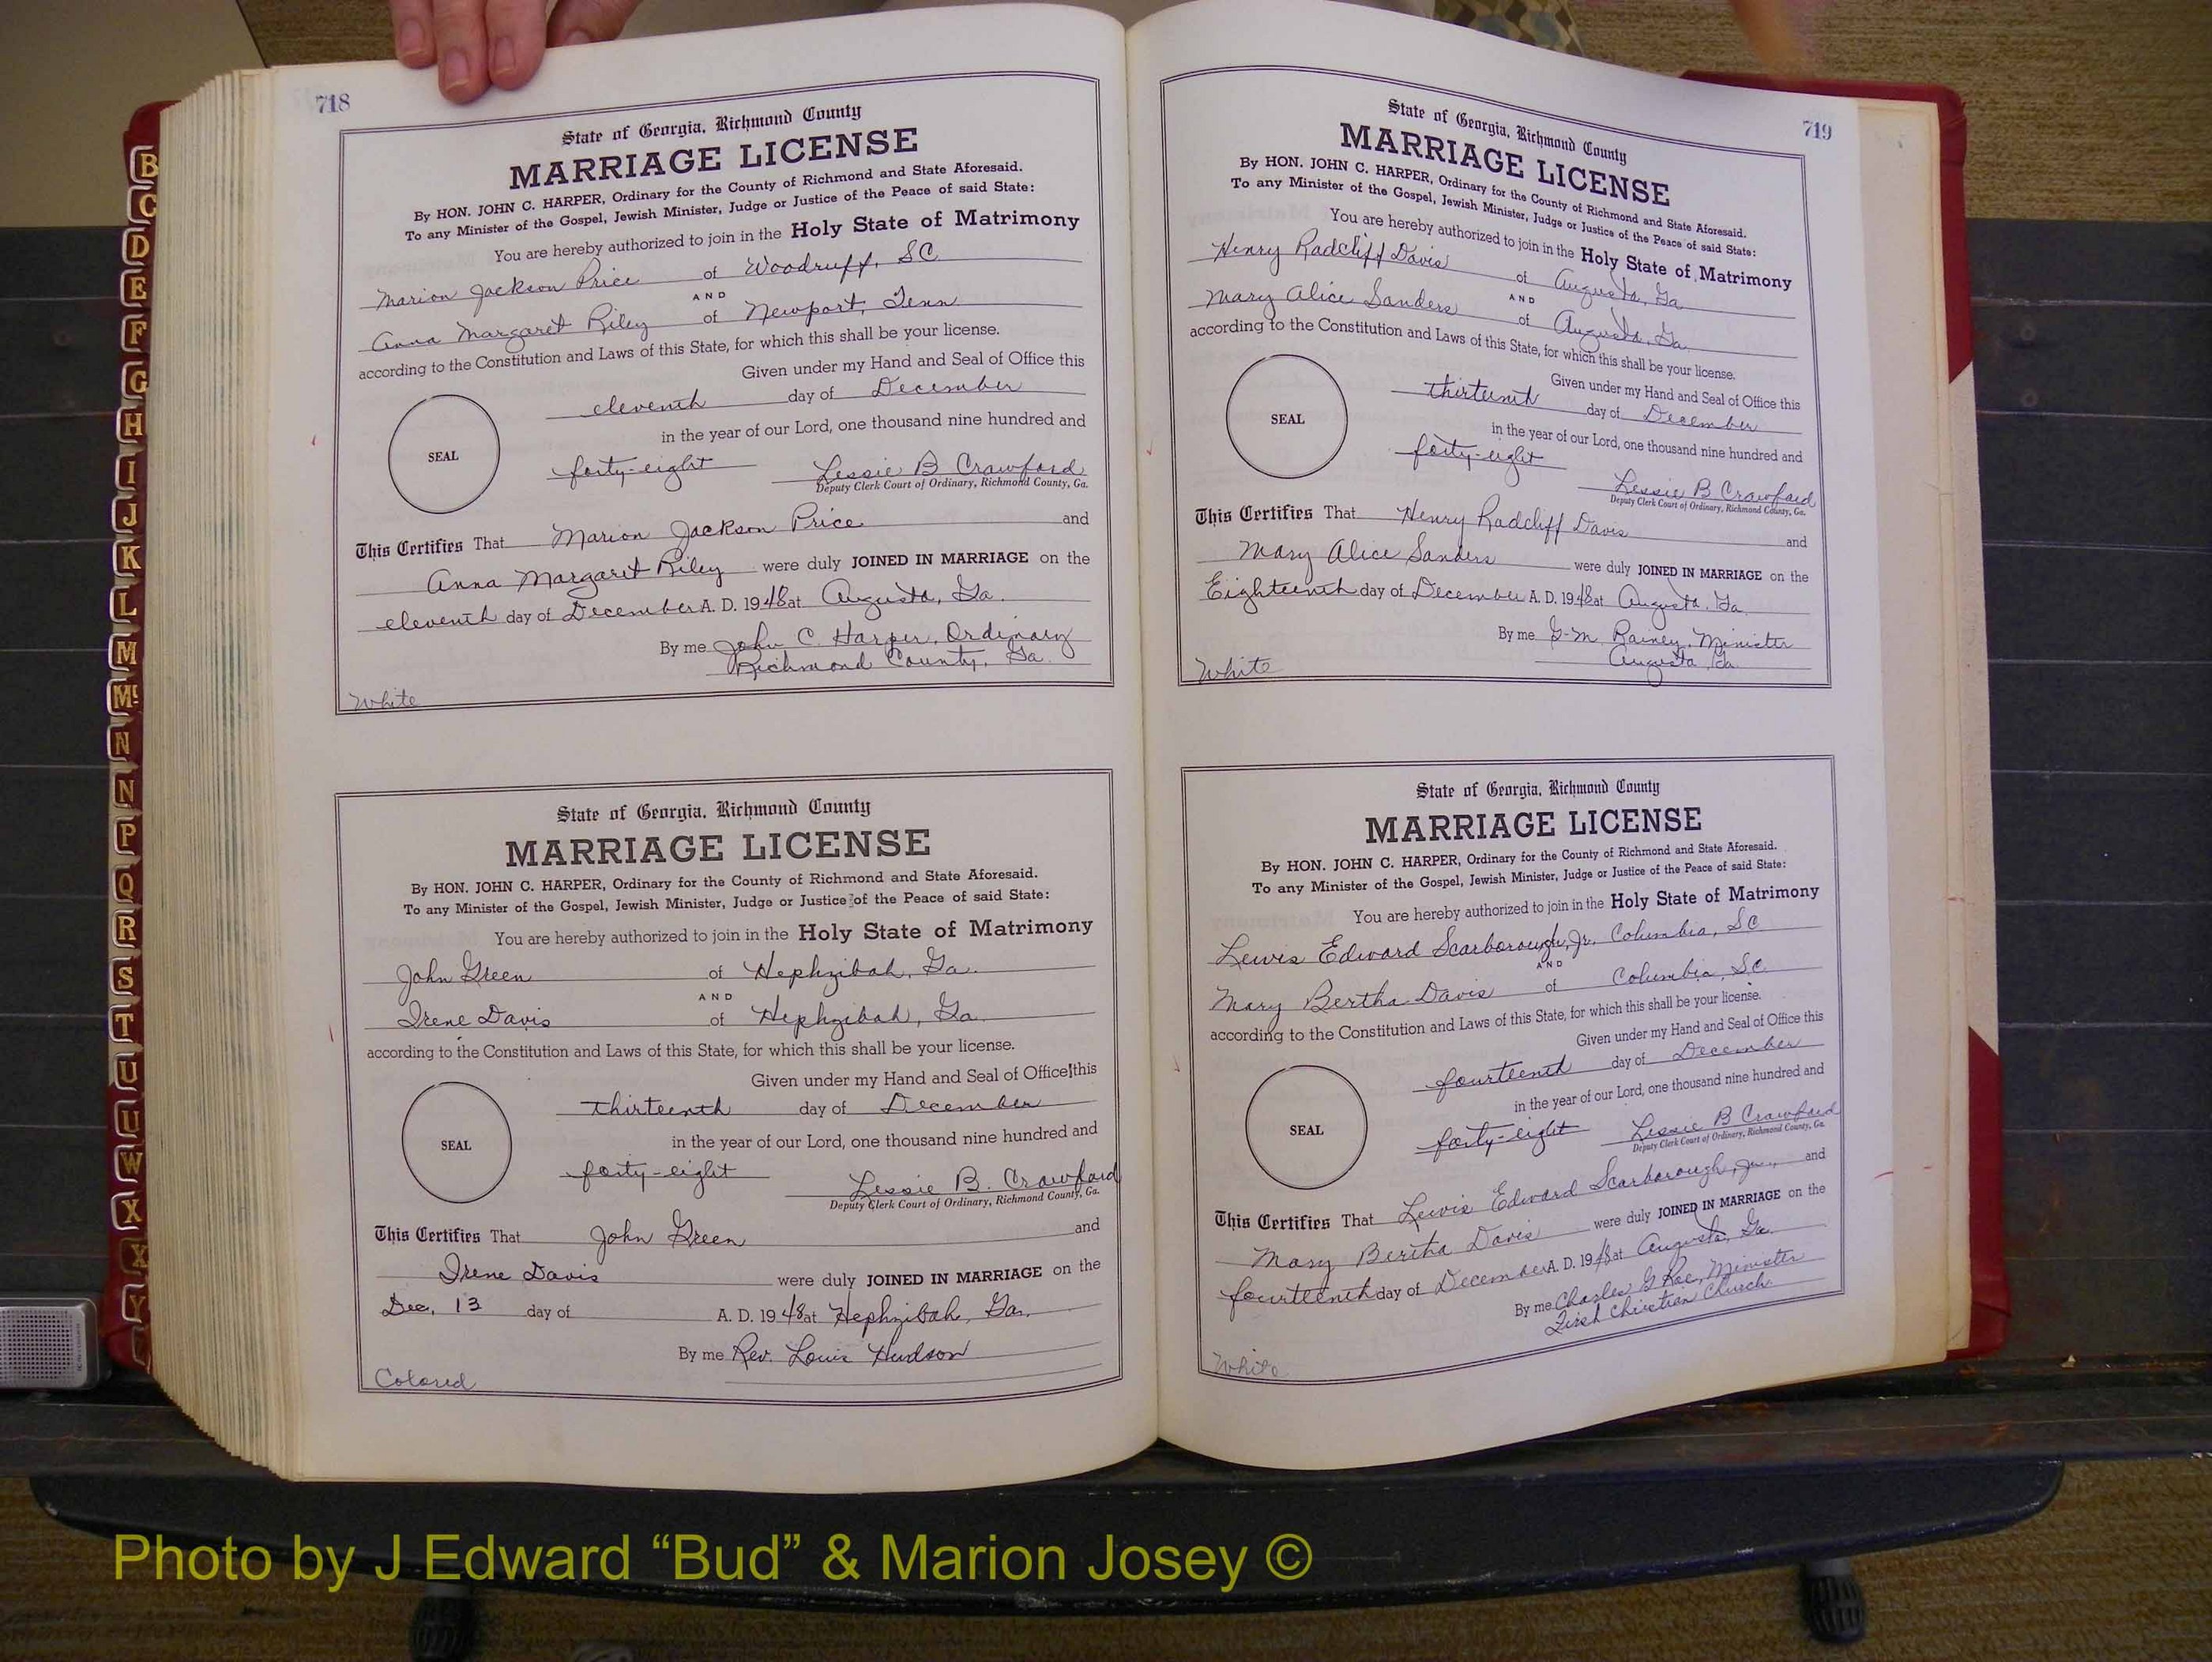 718
State of Georgia, Richmond County
MARRIAGE LICENSE
By HON. JOHN C. HARPER, Ordinary for the County of Richmond and State Aforesaid.
To any Minister of the Gospel, Jewish Minister, Judge or Justice of the Peace of said State:
You are hereby authorized to join in the Holy State of Matrimony
Marion Jackson Price of Woodruff, SC
AND
Anna Margaret Riley of Newport, Tenn
according to the Constitution and Laws of this State, for which this shall be your license.
Given under my Hand and Seal of Office this
eleventh day of December
in the year of our Lord, one thousand nine hundred and
SEAL
forty-eight Lessie B Crawford
Deputy Clerk Court of Ordinary, Richmond County, Ga.
This Certifies That Marion Jackson Price and
Anna Margaret Riley were duly JOINED IN MARRIAGE on the
eleventh day of December A. D. 1948 at Augusta, Ga.
By me John C. Harper, Ordinary
Richmond County, Ga.
White
State of Georgia, Richmond County
MARRIAGE LICENSE
By HON. JOHN C. HARPER, Ordinary for the County of Richmond and State Aforesaid.
To any Minister of the Gospel, Jewish Minister, Judge or Justice of the Peace of said State:
You are hereby authorized to join in the Holy State of Matrimony
John Green of Hephzibah, Ga.
AND
Irene Davis of Hephzibah, Ga.
according to the Constitution and Laws of this State, for which this shall be your license.
Given under my Hand and Seal of Office this
thirteenth day of December
in the year of our Lord, one thousand nine hundred and
SEAL
forty-eight Lessie B. Crawford
Deputy Clerk Court of Ordinary, Richmond County, Ga.
This Certifies That John Green and
Irene Davis were duly JOINED IN MARRIAGE on the
Dec, 13 day of A. D. 1948 at Hephzibah, Ga.
By me Rev. Louis Hudson
Colored
719
State of Georgia, Richmond County
MARRIAGE LICENSE
By HON. JOHN C. HARPER, Ordinary for the County of Richmond and State Aforesaid.
To any Minister of the Gospel, Jewish Minister, Judge or Justice of the Peace of said State:
You are hereby authorized to join in the Holy State of Matrimony
Henry Radcliff Davis of Augusta, Ga
AND
Mary Alice Sanders of Augusta, Ga.
according to the Constitution and Laws of this State, for which this shall be your license.
Given under my Hand and Seal of Office this
thirteenth day of December
in the year of our Lord, one thousand nine hundred and
SEAL
forty-eight Lessie B Crawford
Deputy Clerk Court of Ordinary, Richmond County, Ga.
This Certifies That Henry Radcliff Davis and
Mary Alice Sanders were duly JOINED IN MARRIAGE on the
Eighteenth day of December A. D. 1948 at Augusta, Ga.
By me G-M. Rainey, Minister
Augusta, Ga.
White
State of Georgia, Richmond County
MARRIAGE LICENSE
By HON. JOHN C. HARPER, Ordinary for the County of Richmond and State Aforesaid.
To any Minister of the Gospel, Jewish Minister, Judge or Justice of the Peace of said State:
You are hereby authorized to join in the Holy State of Matrimony
Lewis Edward Scarborough, Jr. Columbia, SC
AND
Mary Bertha Davis of Columbia, SC
according to the Constitution and Laws of this State, for which this shall be your license.
Given under my Hand and Seal of Office this
fourteenth day of December
in the year of our Lord, one thousand nine hundred and
SEAL
forty-eight Lessie B Crawford
Deputy Clerk Court of Ordinary, Richmond County, Ga.
This Certifies That Lewis Edward Scarborough, Jr., and
Mary Bertha Davis were duly JOINED IN MARRIAGE on the
fourteenth day of December A. D. 1948 at Augusta, Ga.
By me Charles G Roe, Minister
First Christian Church
White
B
C
D
E
F
G
H
I
J
K
L
M
Mc
N
N
P
Q
R
S
T
U
U
W
X
X
Y
Photo by J Edward “Bud” & Marion Josey ©